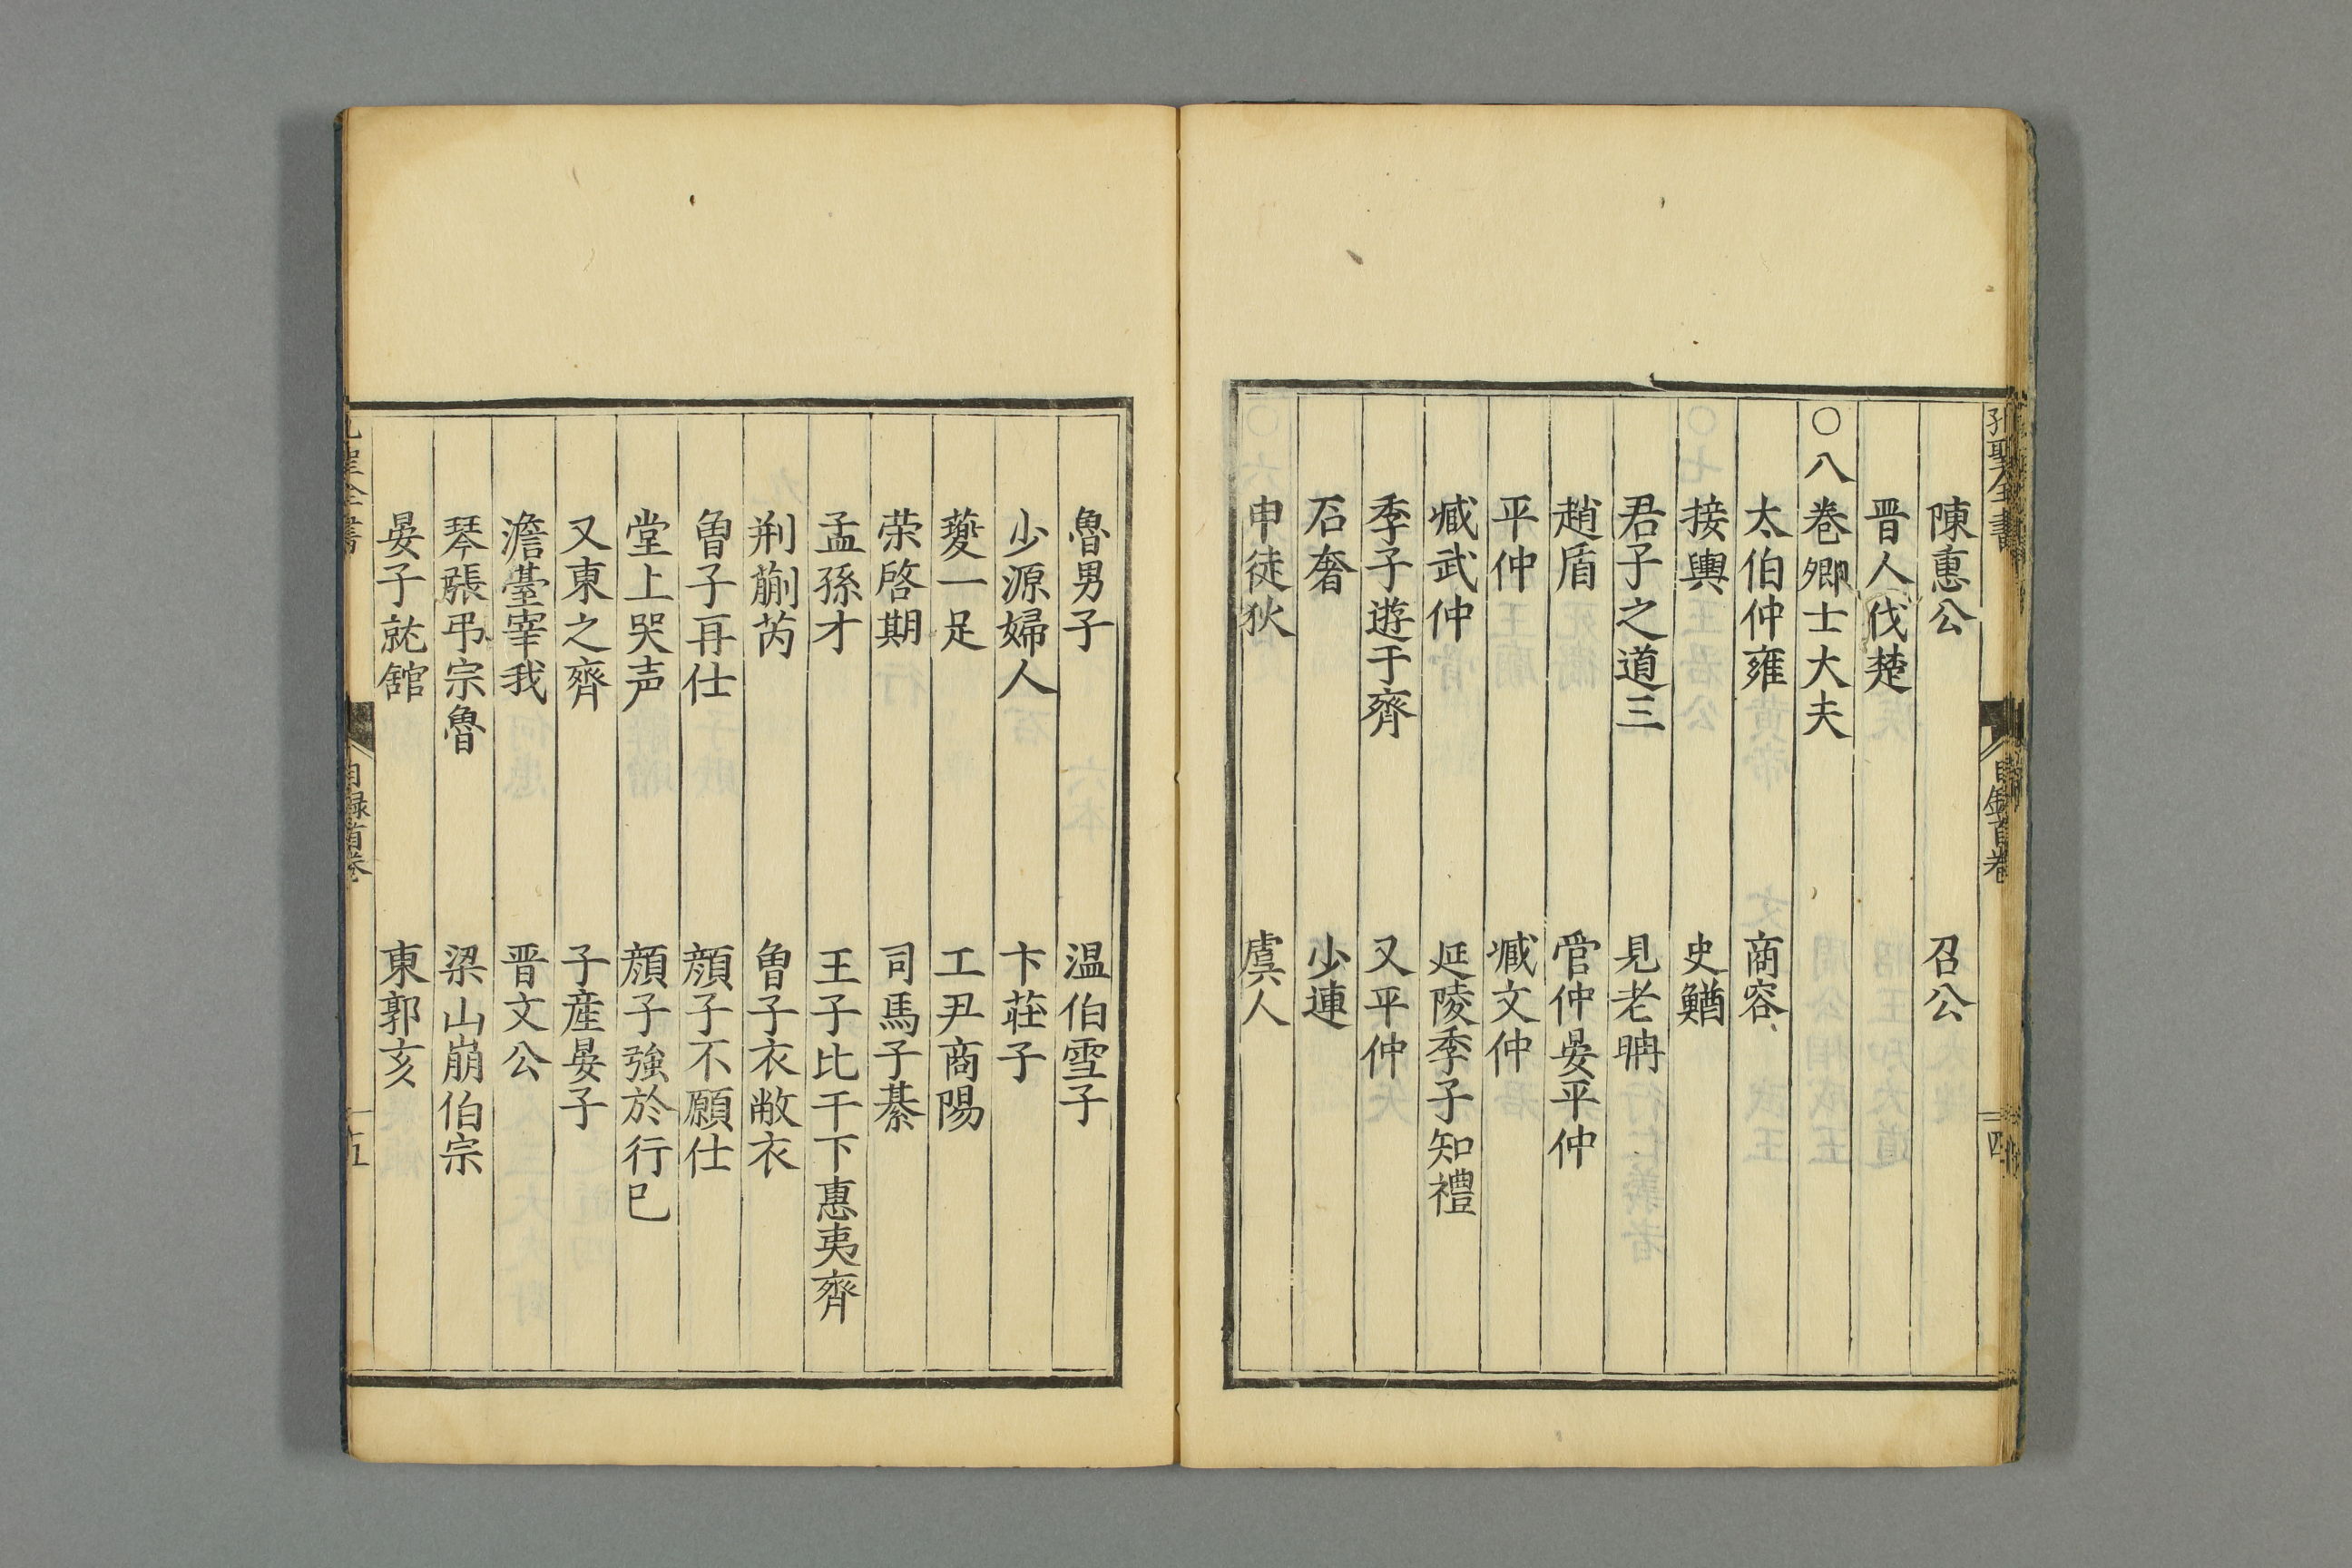 孔聖全書
目錄首卷
四
陳惠公 召公
晋人伐楚
○八卷卿士大夫
太伯仲雍 商容
接輿 史鰌
君子之道三 見老聃
趙盾 管仲晏平仲
平仲 臧文仲
臧武仲 延陵季子知禮
季子遊于齊 又平仲
石奢 少連
申徒狄 虞人
魯男子 温伯雪子
少源婦人 卞莊子
夔一足 工尹商陽
荣啓期 司馬子綦
孟孫才 王子比干下惠夷齊
荆蒯芮 曾子衣敝衣
曾子再仕 顔子不願仕
堂上哭声 顔子強於行己
又東之齊 子產晏子
澹臺宰我 晋文公
琴張弔宗魯 梁山崩伯宗
晏子就舘 東郭亥
目録首卷
五